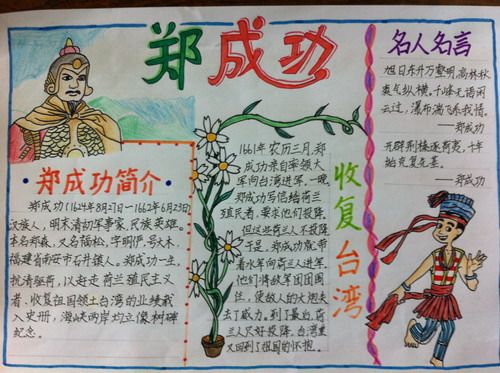 郑成功
郑成功简介
郑成功(1624年8月27日—1662年6月23日)
汉族人，明末清初军事家，民族英雄。
本名郑森，又名福松，字明俨，号大木，
福建省南安市石井镇人。郑成功一生，
抗清驱荷，以赶走荷兰殖民主义
者，收复祖国领土台湾的业绩载
入史册，海峡两岸均立像树碑
纪念。
1661年农历三月，郑
成功亲自率领大
军向台湾进军，一晚，
郑成功写信给荷兰
殖民者，要求他们投降，
但这些荷兰人不投降。
于是，郑成功就带
着水军向荷兰人进军。
他们将敌军团团围
住，使敌人的大炮失
去了威力。到了最后，荷
兰人只好投降，台湾呈
又回到了祖国的怀抱。
收复台湾
名人名言
旭日东升万壑明，高林秋
爽气纵横。千峰无语闲
云过，瀑布湍飞系我情。
——郑成功
开辟荆榛逐荷夷，十年
始克复先基。
——郑成功